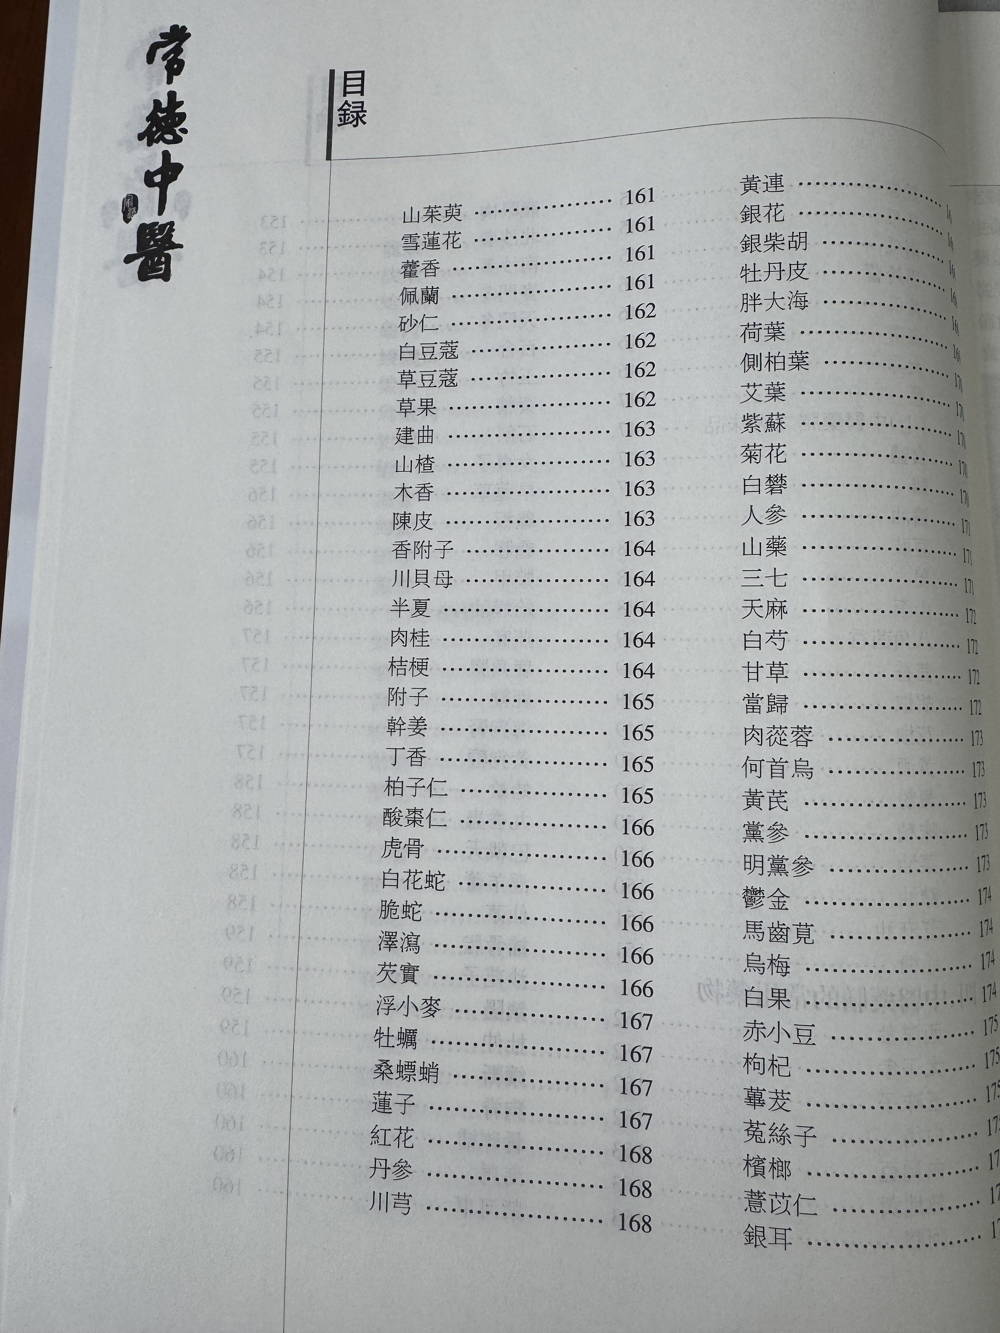 常德中醫
目録
山茱萸 161
雪蓮花 161
藿香 161
佩蘭 161
砂仁 162
白豆蔻 162
草豆蔻 162
草果 162
建曲 163
山楂 163
木香 163
陳皮 163
香附子 164
川貝母 164
半夏 164
肉桂 164
桔梗 164
附子 165
幹姜 165
丁香 165
柏子仁 165
酸棗仁 166
虎骨 166
白花蛇 166
脆蛇 166
澤瀉 166
芡實 166
浮小麥 167
牡蠣 167
桑螵蛸 167
蓮子 167
紅花 168
丹參 168
川芎 168
黃連
銀花
銀柴胡
牡丹皮
胖大海
荷葉
側柏葉
艾葉
紫蘇
菊花
白礬
人參 171
山藥 171
三七 171
天麻 172
白芍 172
甘草 172
當歸 172
肉蓯蓉 173
何首烏 173
黃芪 173
黨參 173
明黨參 173
鬱金 174
馬齒莧 174
烏梅 174
白果 174
赤小豆 175
枸杞 175
蓽茇
菟絲子
檳榔
薏苡仁
銀耳